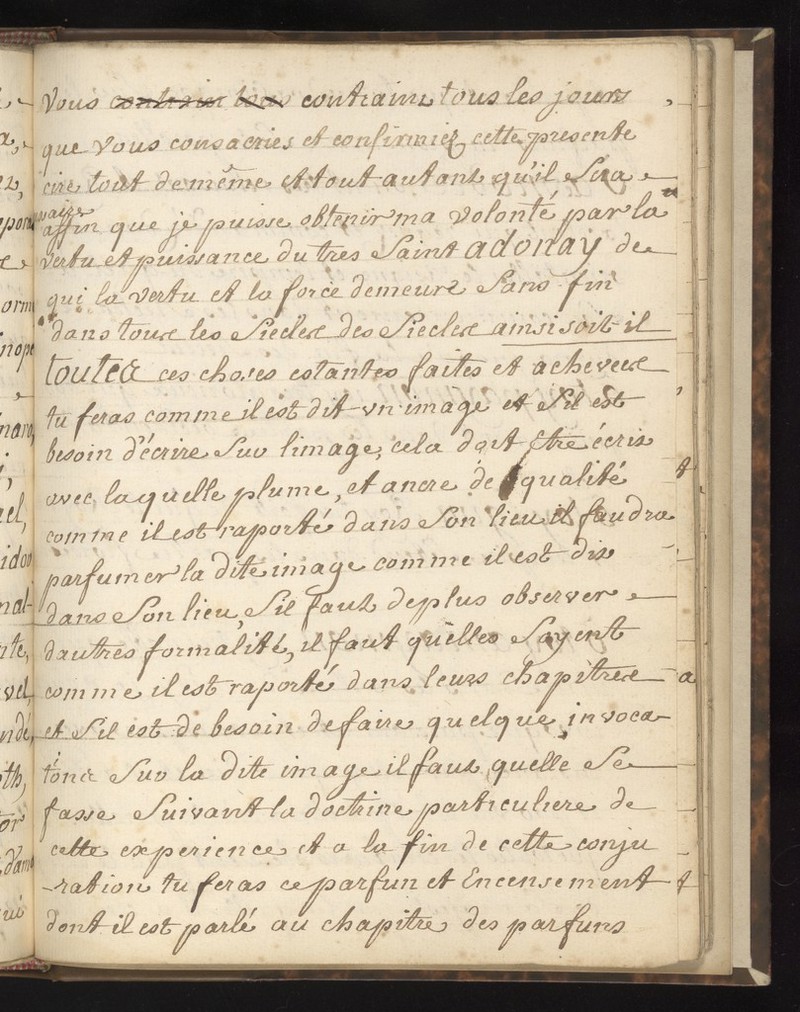 Vous contrain tous contraint tous les jours
que Vous consacries et confirmiez cette presente
cire tout de même et tout autant qu'il Sera
necessaire
affin que je puisse obtenir ma Volonté par la
vertu et puissance du tres Saint adonay de
qui la vertu et la force demeure Sans fin
dans tous les Siecles des Siecles ainsi soit-il
toutes ces choses estantes faites et achevees
tu feras comme il est dit vn image et S'il est
besoin d'écrire Sur limage, cela doit être écrit
avec laquelle plume, et ancre de qualité
comme il est raporté dans Son lieu il faudra
parfumer la dite image comme il est dit
dans Son lieu, S'il faut deplus observer
dautres formalité, il faut quelles Soyent
comme il est raporté dans leurs chapitres
et S'il est de besoin de faire quelque invoca-
tions Sur la dite image il faut quelle Se
fasse Suivant la doctrine particuliere de
cette experience et a la fin de cette conju
-ration tu feras ce parfun et Encensement
dont il est parlé au chapitre des parfuns